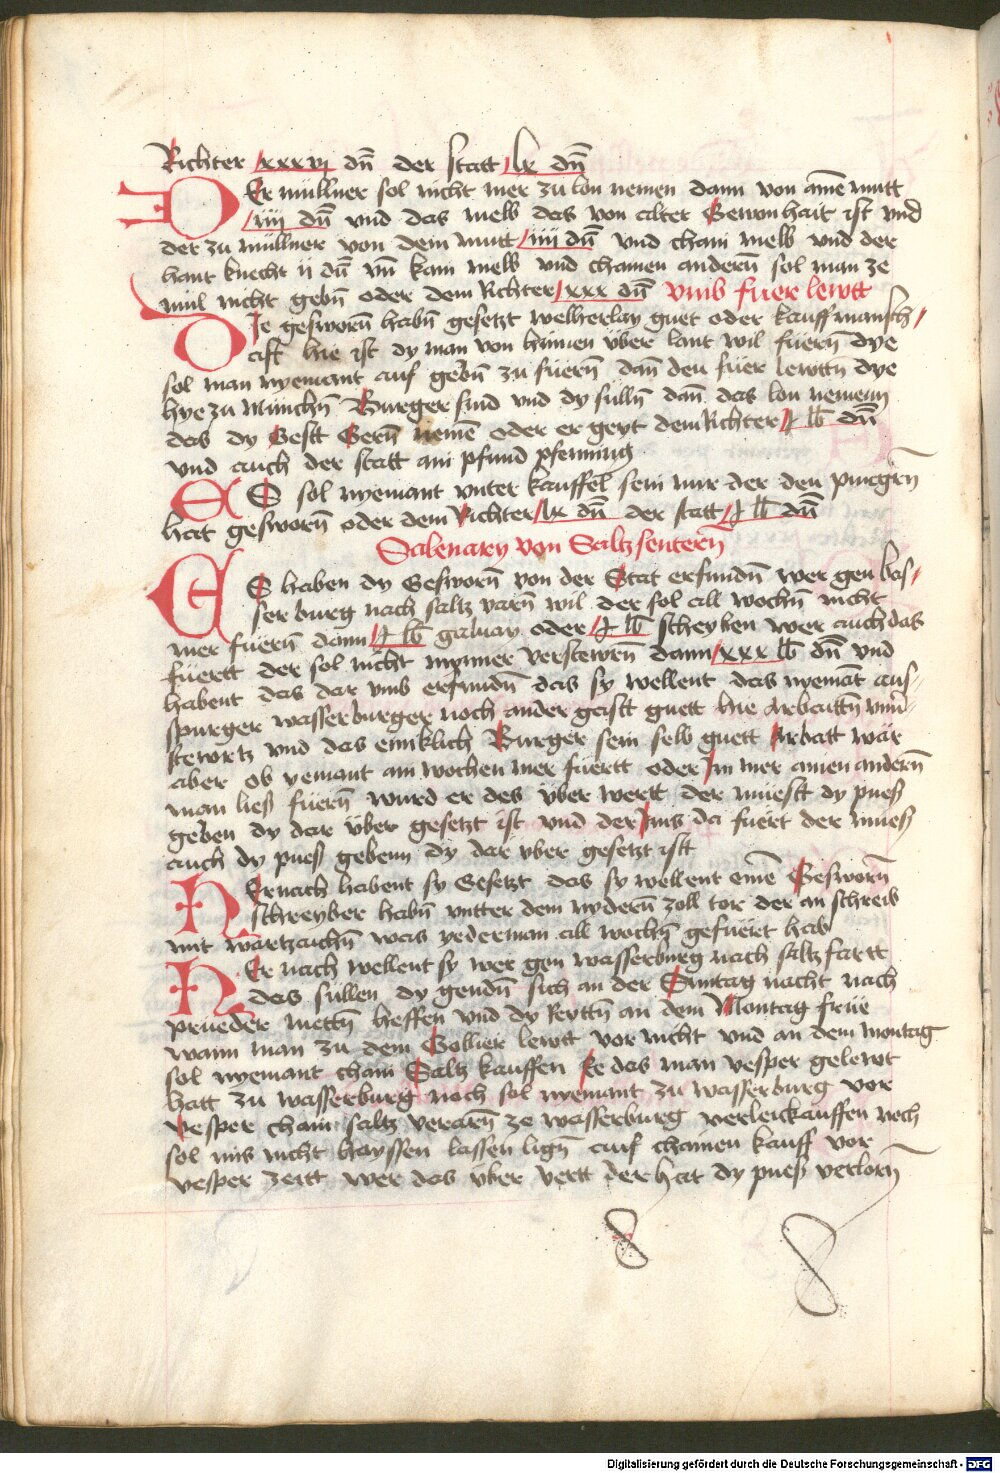 Richter xxxvj dn̄ der statt lx dn̄
DEr müllner sol nicht mer zu lon nemen dann von aīne mutt
iiij dn̄ vnd das melb das von alter Gewonhait ist vnd
der zu müllner von dem mutt iiij dn̄ vnd chain melb vnd der
haut knecht ij dn̄ vn̄ kain melb vnd chainen andern̄ sol man ze
mül nicht gebn̄ oder dem Richter xxx dn̄ vmb fuer lewtt
DIe gesworn̄ habn̄ gesetzt welherlay guet oder kauffmansch
aft hie ist dy man von hinnen über lant wil füern̄ dye
sol man nyemant auf gebn̄ zu füern̄ dan̄ den füer lewttn̄ dye
hye zu Münchn̄ Burger sind vnd dy sulln̄ dan̄ das lon nemenn
das dy Gestt Gern̄ nemē oder er geyt dem Richter j lb dn̄
vnd auch der statt ain pfund pfenning
ES sol nyemant vnter kauffel sein nur der den purgern̄
hat gesworn̄ oder dem Richter lx dn̄ der statt j lb dn̄
Salenary von Saltz sentern̄
ES haben dy Gesworn̄ von der Stat erfundn̄ wer gen bas
ser burg nach saltz varn̄ wil der sol all wochn̄ nicht
mer füern̄ dann j lb galuay oder j lb scheyben wer auch das
füertt der sol nicht mynner verstewrn̄ dann xxx lb dn̄ vnd
habent das dar vmb erfundn̄ das sy wellent das nyemāt aus
spurger wasserburger noch ander gastt guett hie Arbaittn̄
stewrtz vnd das ainiklich Burger sein selb guett Arbatt wär
aber ob yemant ain wochen mer füertt oder Im mer ainen andern̄
man ließ füern̄ wurd er des über wertt der muestt dy pueß
geben dy dar über gesetzt ist vnd der ims da fuert der mueß
auch dy pueß gebenn dy dar vber gesetzt istt
HErnach habent sy Gesetzt das sy wellent einē Gesworn̄
schreyber habn̄ vntter dem nydern̄ zoll tor der an schreib
mit wartzaichn̄ was yederman all wochn̄ gefuert hab
HEr nach wellent sy wer gen wasserburg nach saltz fartt
das sullen dy gendn̄ sich an der Suntag nacht nach
prueder mettn̄ heffen vnd dy Reyttn̄ an dem Montag früe
wann man zu dem Gollier lewtt vor nicht vnd an dem montag
sol nyemant chain Saltz kauffen Ee das man vesper gelewt
hatt zu wasserburg noch sol nyemant zu wasserburg vor
vesper chain saltz ze wasserburg verleickauffen noch
sol ims nicht hayssen lassen lign̄ auf chainen kauff vor
vesper zeitt wer das über vertt der hat dy pueß verlorn̄
Digitalisierung gefördert durch die Deutsche Forschungsgemeinschaft - DFG